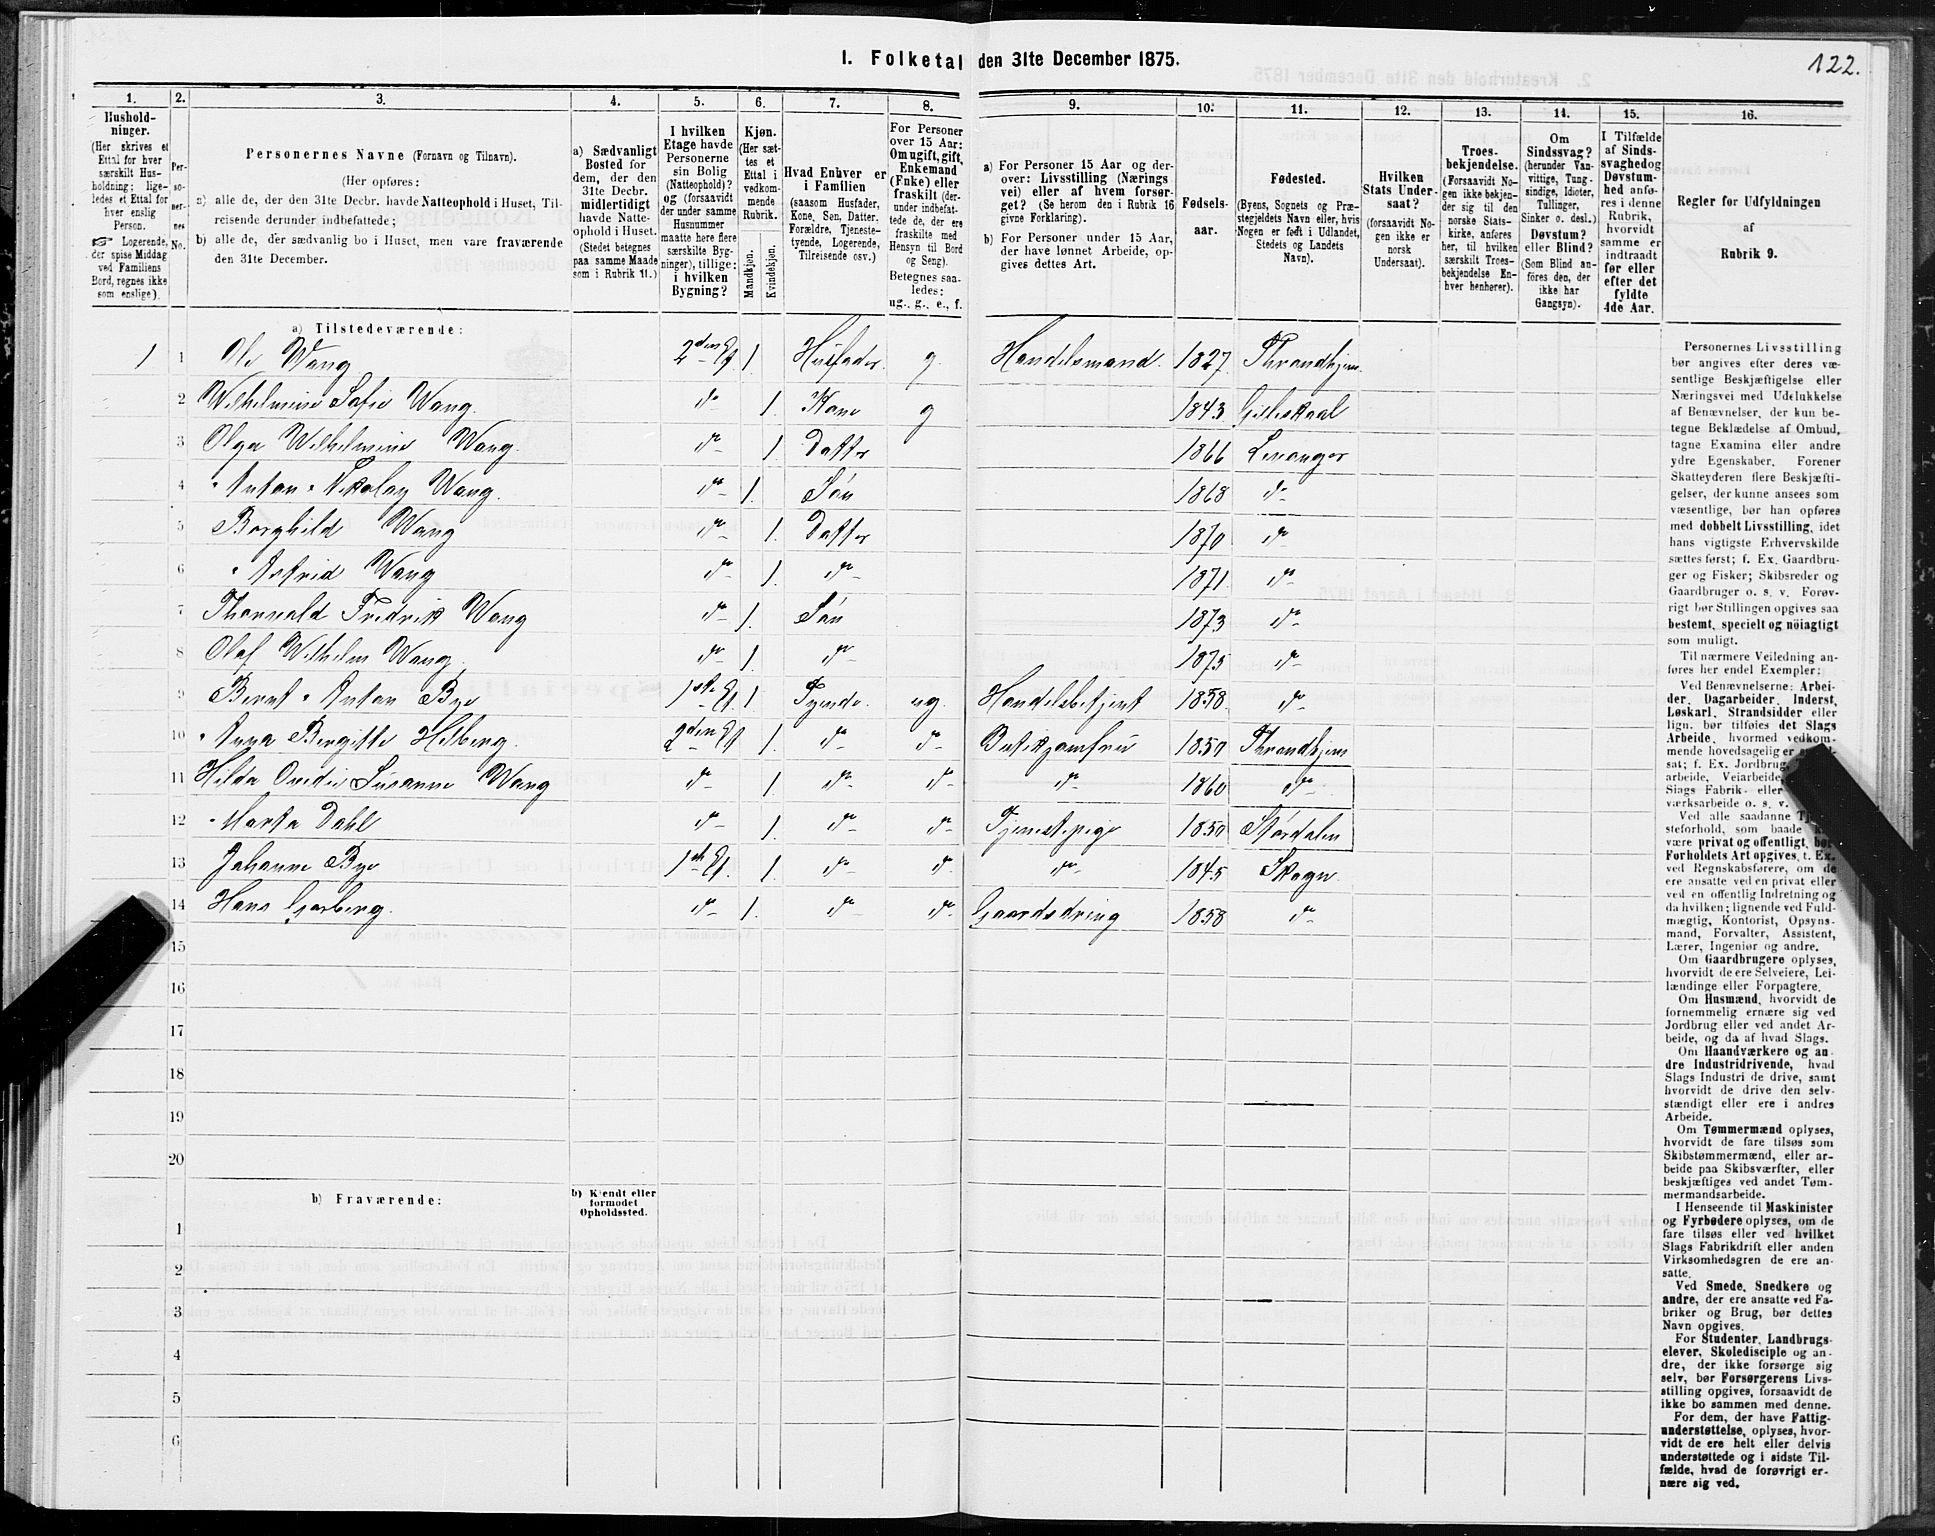 122.
I. Folketal den 31te December 1875.
1. 2. 3. 4. 5. 6. 7. 8. 9. 10. 11. 12. 13. 14. 15. 16.
Hushold-
ninger.
(Her skrives et
Ettal for hver
særskilt Hus-
holdning; lige-
ledes et Ettal for
hver enslig
Person.
☞ Logerende,
der spise Middag
ved Familiens
Bord, regnes ikke
som enslige).
Per-
so-
ner-
nes
No.
Personernes Navne (Fornavn og Tilnavn).
(Her opføres:
a) alle de, der den 31te Decbr. havde Natteophold i Huset, Til-
reisende derunder indbefattede;
b) alle de, der sædvanlig bo i Huset, men vare fraværende
den 31te December.
a) Sædvanligt
Bosted for
dem, der den
31te Decbr.
midlertidigt
havde Natte-
ophold i Huset.
(Stedet betegnes
paa samme Maade
som i Rubrik 11.)
I hvilken
Etage havde
Personerne
sin Bolig
(Natteophold)?
og (forsaavidt
der under samme
Husnummer
maatte høre flere
særskilte Byg-
ninger), tillige:
i hvilken
Bygning?
Kjøn.
(Her sæt-
tes et
Ettal i
vedkom-
mende
Rubrik.
Mandkjøn.
Kvindekjøn.
Hvad Enhver er
i Familien
(saasom Husfader,
Kone, Søn, Datter,
Forældre, Tjeneste-
tyende, Logerende,
Tilreisende osv.)
For Personer
over 15 Aar:
Omugift, gift,
Enkemand
(Enke) eller
fraskilt (der-
under indbefat-
tede de, der ere
fraskilte med
Hensyn til Bord
og Seng).
Betegnes saa-
ledes:
ug., g., e., f.
a) For Personer 15 Aar og der-
over: Livsstilling (Nærings
vei) eller af hvem forsør-
get? (Se herom den i Rubrik 16
givne Forklaring).
b) For Personer under 15 Aar,
der have lønnet Arbeide, op-
gives dettes Art.
Fødsels-
aar.
Fødested.
(Byens, Sognets og Præ-
stegjeldets Navn eller, hvis
Nogen er født i Udlandet,
Stedets og Landets
Navn).
Hvilken
Stats Under-
saat?
(forsaavidt No-
gen ikke er
norsk
Undersaat).
Troes-
bekjendelse.
(Forsaavidt No-
gen ikke bekjen-
der sig til den
norske Stats-
kirke, anføres
her, til hvilken
særskilt Troes-
bekjendelse En-
hver henhører).
Om
Sindssvag?
(herunder Van-
vittige, Tung-
sindige, Idioter,
Tullinger,
Sinker o. desl.)
Døvstum?
eller Blind?
(Som Blind an-
føres den, der
ikke har
Gangsyn).
I Tilfælde
af Sinds-
svaghed og
Døvstum-
hed anfø-
res i denne
Rubrik,
hvorvidt
samme er
indtraadt
før eller
efter det
fyldte
4de Aar.
Regler for Udfyldningen
af
Rubrik 9.
a) Tilstedeværende:
1 1 Ole Wang 2den Et 1. Husfader g. Handelsmand. 1827. Throndhjem.
2 Wilhelmine Sofie Wang. do 1. Kone g 1843 Gilleskaal
3 Olga Wilhelmine Wang. do 1 Datter 1866 Levanger
4 Anton Nikolay Wang. do 1. Søn 1868 do
5 Borghild Wang do 1. Datter 1870 do
6 Astrid Wang do 1. do 1871. do
7 Thorvald Fredrik Wang do 1. Søn 1873 do
8 Olaf Wilhelm Wang. do 1 do 1875 do
9 Bernt Anton Bye 1ste Et. 1 Tyende. ug. Handelsbetjent 1858. do
10 Anna Bergitte Helberg. 2den Et 1. do do Butikjomfru 1850 Throndhjem
11 Hilda Ovedie Susanne Wang do 1 do do do 1860 do
12 Marta Dahl do 1. do do Tjenestepige 1850 Størdalen
13 Johanne Bye 1ste Et. 1. do do do 1845 Skogn
14 Hans Gjørberg. do 1. do do Gaardsdreng 1858 do
15
16
17
18
19
20
b) Fraværende:
b) Kjendt eller
formodet
Opholdssted.
1
2
3
4
5
6
Personernes Livsstilling
bør angives efter deres væ-
sentlige Beskjæftigelse eller
Næringsvei med Udelukkelse
af Benævnelser, der kun be-
tegne Beklædelse af Ombud,
tagne Examina eller andre
ydre Egenskaber. Forener
Skatteyderen flere Beskjæfti-
gelser, der kunne ansees som
væsentlige, bør han opføres
med dobbelt Livsstilling, idet
hans vigtigste Erhvervskilde
sættes først; f. Ex. Gaardbru-
ger og Fisker; Skibsreder og
Gaardbruger o. s. v. Forøv-
rigt bør Stillingen opgives saa
bestemt, specielt og nöiagtigt
som muligt.
Til nærmere Veiledning an-
føres her endel Exempler:
Ved Benævnelserne: Arbei-
der, Dagarbeider, Inderst,
Løskarl, Strandsidder eller
lign. bør tilføies det Slags
Arbeide, hvormed vedkom-
mende hovedsagelig er
sat; f. Ex. Jordbrug,
arbeide, Veiarbeide,
Slags Fabrik- eller
værksarbeide o. s. v.
Ved alle saadanne
steforhold, som baade
være privat og offentligt, bør
Forholdets Art opgives, f. Ex.
ved Regnskabsførere, om de
ere ansatte ved en privat eller
ved en offentlig Indretning og
da hvilken; lignende ved Fuld-
mægtig, Kontorist, Opsyns-
mand, Forvalter, Assistent,
Lærer, Ingeniør og andre.
Om Gaardbrugere oplyses,
hvorvidt de ere Selveiere, Lei-
lændinge eller Forpagtere.
Om Husmænd, hvorvidt de
fornemmelig ernære sig ved
Jordbrug eller ved andet Ar-
beide, og da af hvad Slags.
Om Haandværkere og an-
dre Industridrivende, hvad
Slags Industri de drive, samt
hvorvidt de drive den selv-
stændigt eller ere i andres
Arbeide.
Om Tømmermænd oplyses,
hvorvidt de fare tilsøs som
Skibstømmermænd, eller ar-
beide paa Skibsværfter, eller
beskjæftiges ved andet Tøm-
mermandsarbeide.
I Henseende til Maskinister
og Fyrbødere oplyses, om de
fare tilsøs eller ved hvilket
Slags Fabrikdrift eller anden
Virksomhedsgren de ere an-
satte.
Ved Smede, Snedkere og
andre, der ere ansatte ved Fa-
briker og Brug, bør dettes
Navn opgives.
For Studenter, Landbrugs-
elever, Skoledisciple og an-
dre, der ikke forsørge sig
selv, bør Forsørgerens Livs-
stilling opgives, forsaavidt de
ikke bo sammen med denne.
For dem, der have Fattig-
understøttelse, oplyses, hvor-
vidt de ere helt eller delvis
understøttede og i sidste Til-
fælde, hvad de forøvrigt er-
nære sig ved.